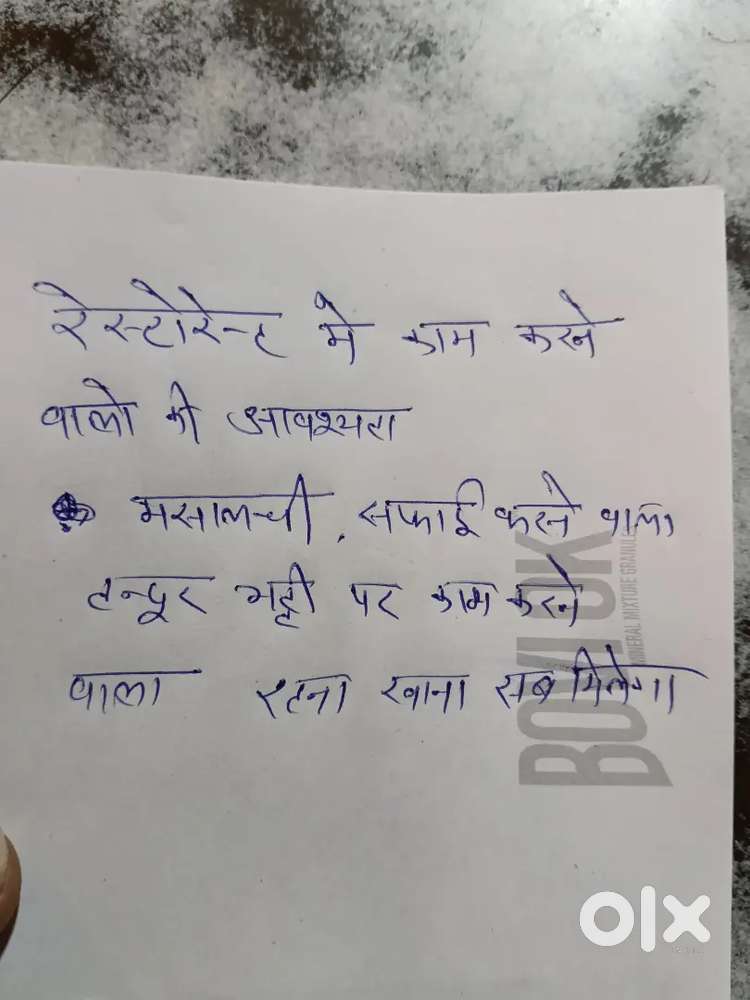 रेस्टोरेन्ट मे काम करने
वालो की आवश्यता
मसालची, सफाई करने वाला
तन्दूर भट्टी पर काम करने
वाला रहना खाना सब मिलेगा
BOVI OK
MINERAL MIXTURE GRANULE
olx